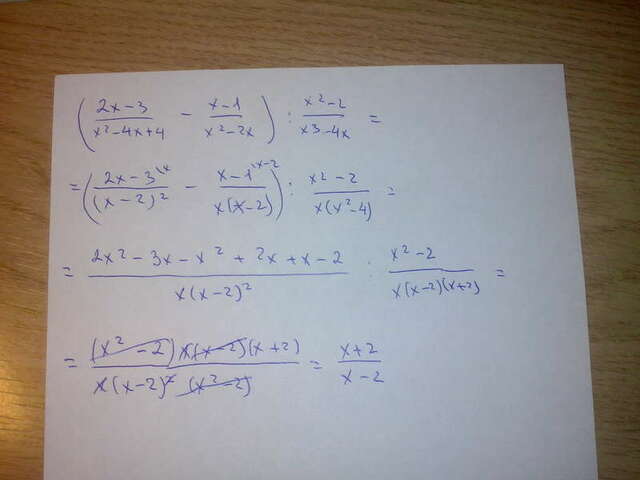 ( (2x-3)/(x²-4x+4) - (x-1)/(x²-2x) ) : (x²-2)/(x3-4x) =
= ( (2x-3 \x)/(x-2)² - (x-1 \x-2)/(x(x-2)) ) : (x²-2)/(x(x²-4)) =
= (2x²-3x-x²+2x+x-2)/(x(x-2)²) : (x²-2)/(x(x-2)(x+2)) =
= ((x²-2)x(x-2)(x+2))/(x(x-2)²(x²-2)) = (x+2)/(x-2)